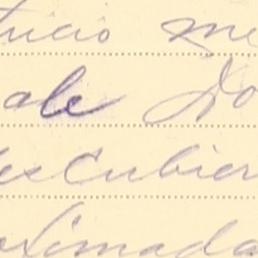 tricio me
ale Do
escubier
oximada